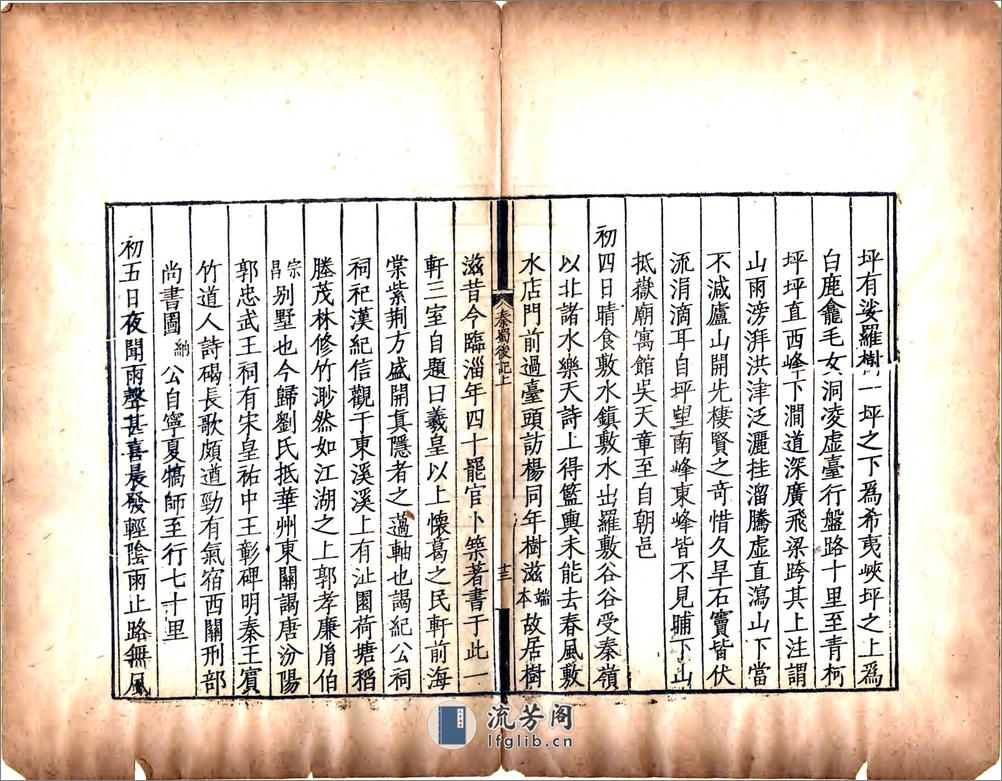 坪有娑羅樹一坪之下爲希夷峽坪之上爲
白鹿龕毛女洞凌虛臺行盤路十里至青柯
坪坪直西峰下澗道深廣飛梁跨其上注謂
山雨滂湃洪津泛灑挂溜騰虛直瀉山下當
不減廬山開先棲賢之奇惜久旱石竇皆伏
流涓滴耳自坪望南峰東峰皆不見晡下山
抵嶽廟寓館吳天章至自朝邑
初四日晴食敷水鎮敷水出羅敷谷谷受秦嶺
以北諸水樂天詩上得籃輿未能去春風敷
水店門前過臺頭訪楊同年樹滋端本故居樹
秦蜀後記上
十三
滋昔今臨淄年四十罷官卜築著書于此一
軒三室自題曰羲皇以上懷葛之民軒前海
棠紫荆方盛開真隱者之薖軸也謁紀公祠
祠祀漢紀信觀于東溪溪上有沚園荷塘稻
塍茂林修竹渺然如江湖之上郭孝廉㣧伯
宗昌別墅也今歸劉氏抵華州東關謁唐汾陽
郭忠武王祠有宋皇祐中王彰碑明秦王賓
竹道人詩碣長歌頗遒勁有氣宿西關刑部
尚書圖納公自寧夏犒師至行七十里
初五日夜聞雨聲甚喜晨發輕陰雨止路無風
流芳阁
lfglib.cn